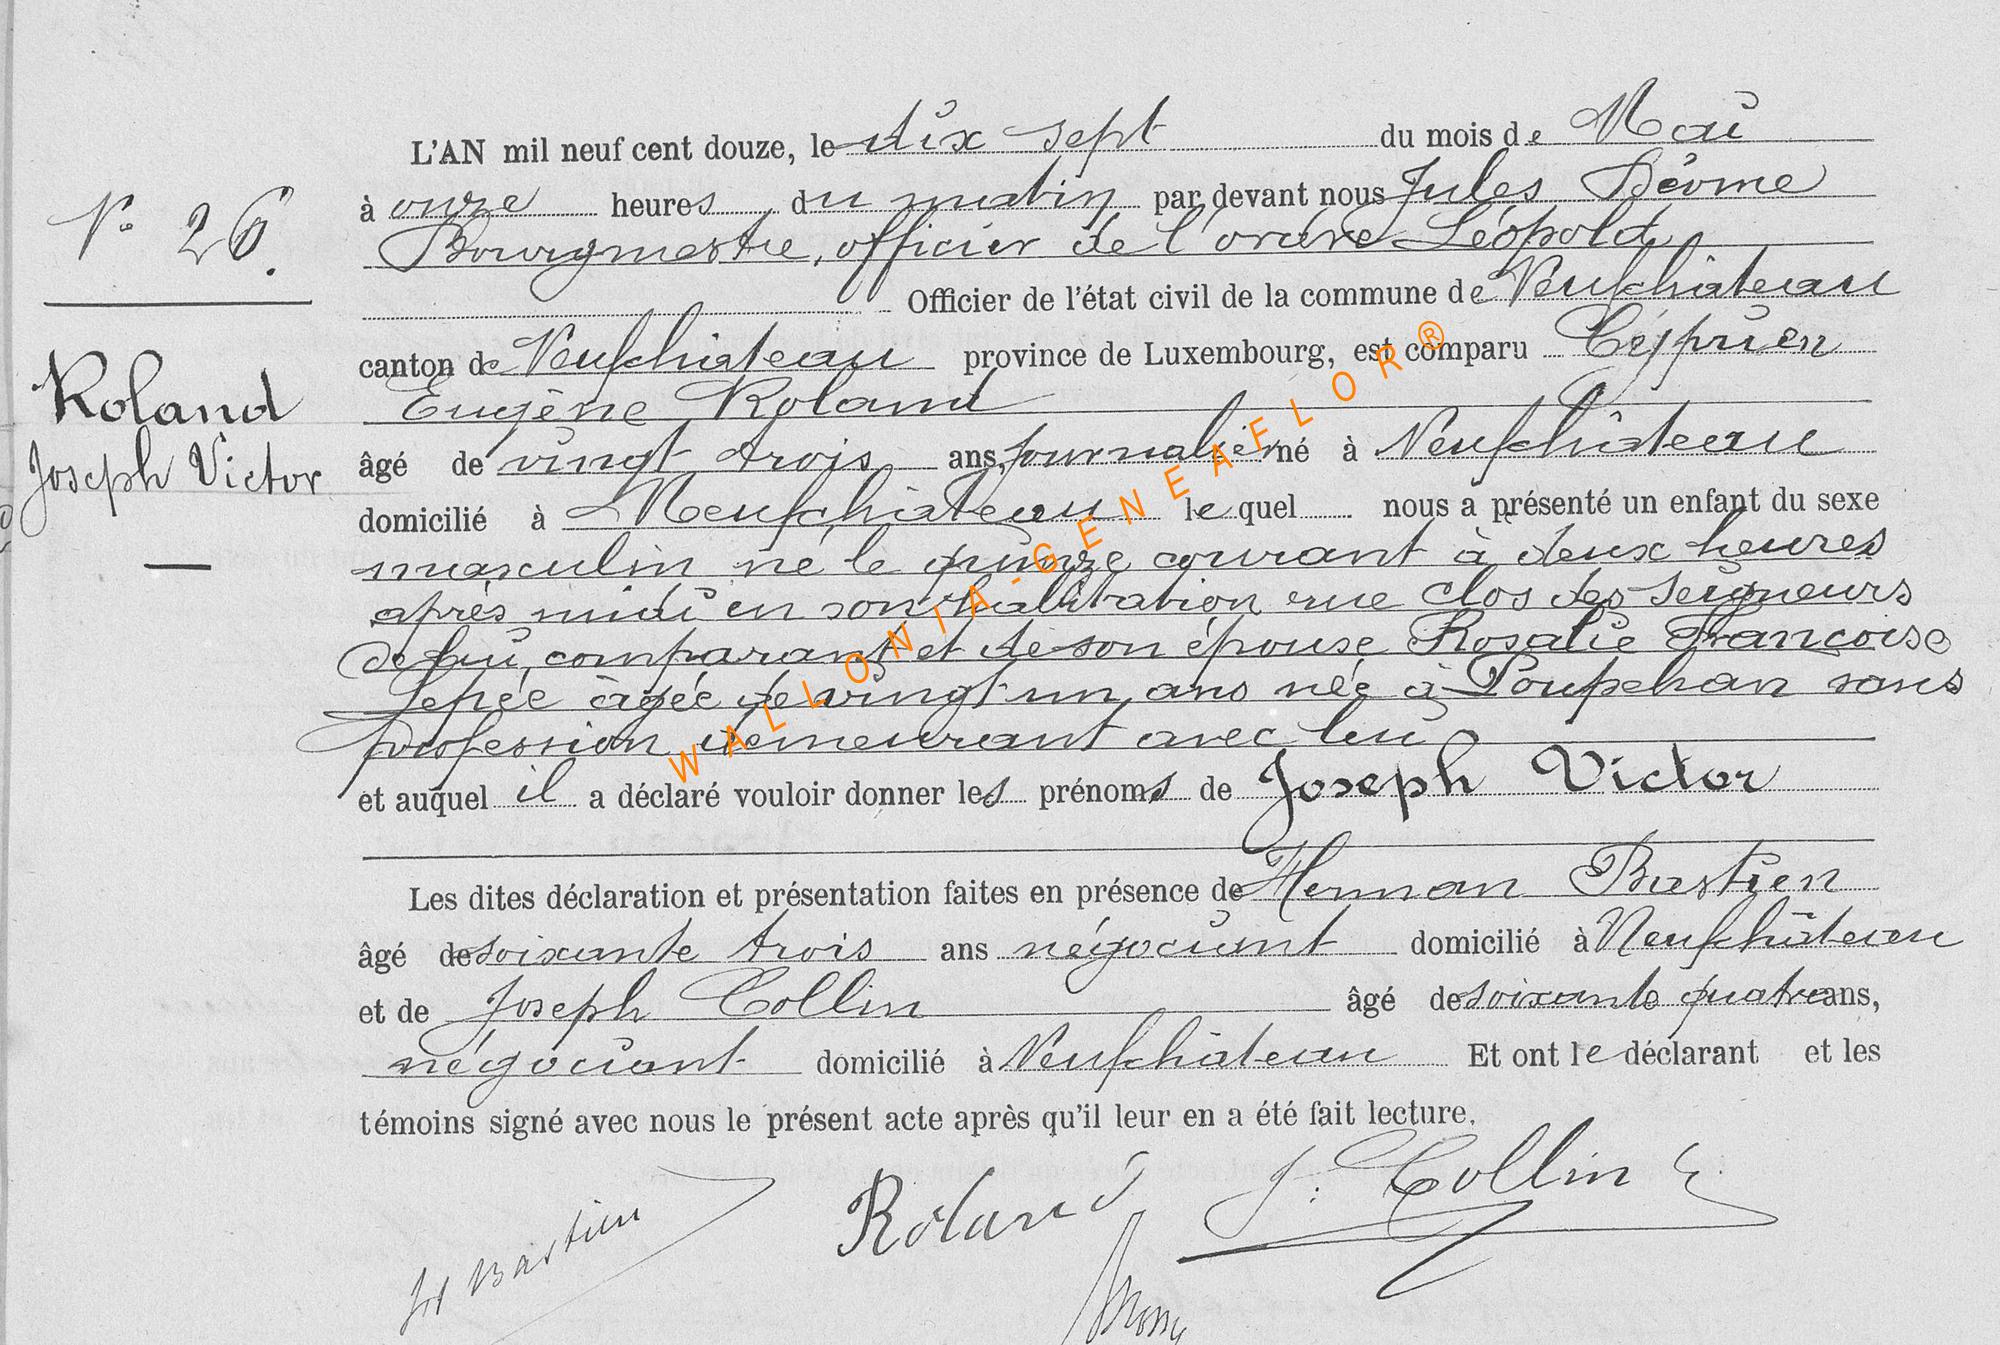 L'AN mil neuf cent douze, le dix sept du mois de Mai
N° 26.
à onze heures du matin par devant nous Jules
Bourgmestre, officier de l'ordre Léopold
Officier de l'état civil de la commune de Neufchâteau
canton de Neufchâteau province de Luxembourg, est comparu Cyprien
Eugène Roland
Roland
Joseph Victor
âgé de vingt trois ans, journalier né à Neufchâteau
domicilié à Neufchâteau lequel nous a présenté un enfant du sexe
masculin né le quinze courant à deux heures
après midi en son habitation rue clos des Seigneurs
de lui, comparant et de son épouse Rosalie Françoise
âgée de vingt-un ans née à Poupehan sans
profession demeurant avec lui
et auquel il a déclaré vouloir donner les prénoms de Joseph Victor
Les dites déclaration et présentation faites en présence de Herman Bastien
âgé de soixante trois ans négociant domicilié à Neufchâteau
et de Joseph Collin âgé de soixante quatre ans,
négociant domicilié à Neufchâteau Et ont le déclarant et les
témoins signé avec nous le présent acte après qu'il leur en a été fait lecture.
Bastien
Roland
J. Collin
WALLONIA-GENEAFLOR®